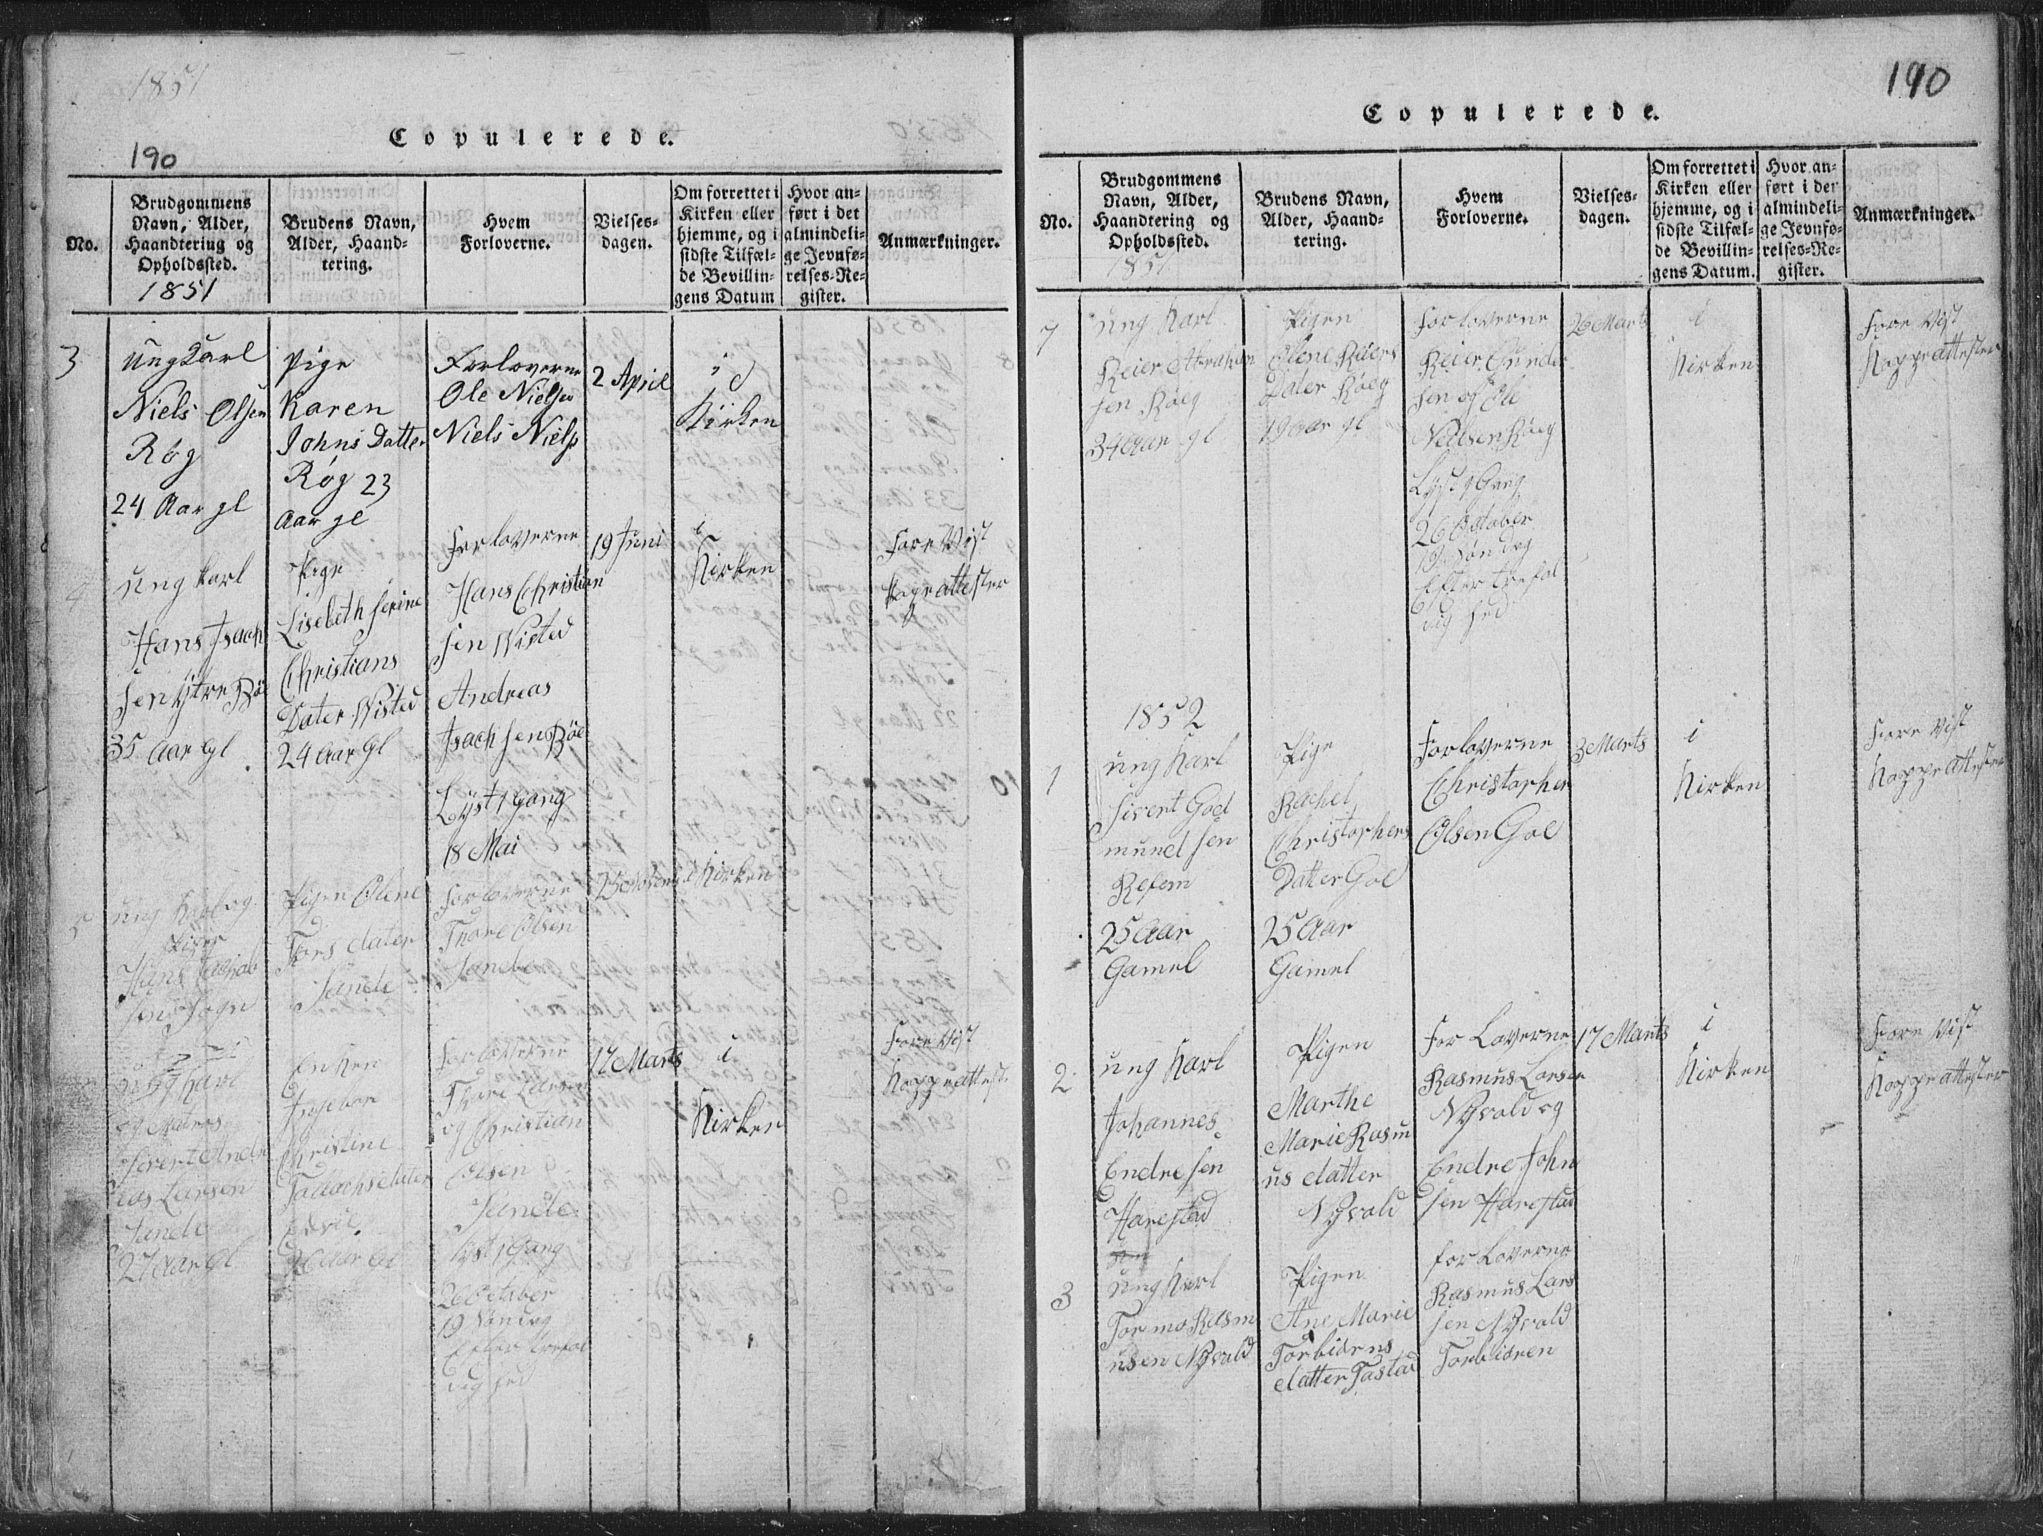 1851
Copulerede.
190
No.
Brudgommens
Navn, Alder,
Haandtering og
Opholdssted.
1851
Brudens Navn,
Alder, Haand-
tering.
Hvem
Forloverne.
Vielses-
dagen.
Om forrettet i
Kirken eller
hjemme, og i
sidste Tilfæl-
de Bevillin-
gens Datum
Hvor an-
ført i det
almindeli-
ge Jevnfø-
relses-Re-
gister.
Anmærkninger.
3
ung Karl
Niels Olsen
Røg
24 Aar gl
Pige
Karen
Johns Datter
Røg 23
Aar gl
Forloverne
Ole Nielsen
Niels Niels
2 April
i
Kirken
4
ung karl
Hans Isach
sen ytre Bø
35 Aar gl
Pige
Lisebeth Serine
Christians
Dater Wisted
24 Aar Gl
Forloverne
Hans Christian
sen Wisted
Andreas
Isachsen Bøe
Lyst 1 Gang
18 Mai
19 Juni
i
Kirken
Fore Vist
kopeattester
5
ung Karl og
Hans
sen Sogn
Pigen Oline
Tors dater
Sande
Forloverne
Thore Olsen
Sande
Kirken
ung Karl
Sivert Andr
eas Larsen
Sande
27 Aar Gl
Enken
Ingebor
Christine
Forloverne
Thore Larsen
og Christian
Olsen
Sande
Lyst 1 Gang
26 October
19 Søndag
Efter trefol
dig hed
17 Marts
i
Kirken
Fore Vist
Koppeattester
190
Copulerede.
No.
Brudgommens
Navn, Alder,
Haandtering og
Opholdssted.
1851
Brudens Navn,
Alder, Haand-
tering.
Hvem
Forloverne.
Vielses-
dagen.
Om forrettet i
Kirken eller
hjemme, og i
sidste Tilfæl-
de Bevillin-
gens Datum.
Hvor an-
ført i der
almindeli-
ge Jevnfø-
relses-Re-
gister.
Anmærkninger.
7
ung Karl
Reier Abraham
sen Røeg
34 Aar gl
Pigen
Olene Reiers
Dater Røeg
19 Aar gl
Forloverne
Reier Gunder
sen og Ole
Nielsen Røeg
Lyst 1 Gang
26 October
19 Søndag
Efter trefol
dig hed
26 Marts
i
Kirken
Fore Vist
Koppeattester
1852
1
ung Karl
Sivert God
mund sen
Refem
25 Aar
Gamel
Pige
Rachel
Christophers
Datter Goe
25 Aar
Gamel
Forloverne
Christopher
Olsen Goe
3 Marts
i
Kirken
Fore Vist
Koppeattester
2
ung Karl
Johannes
Endre sen
Harestad
Pigen
Marthe
Marie Rasm
us datter
Nyvold
For Loverne
Rasmus Larsen
Nyvold og
Endre John
sen Harestad
17 Marts
i
Kirken
Fore Vist
Koppeattester
3
ung Karl
Tormo Rasm
usen Nyvold
Pigen
Ane Marie
Torbiørns
datter Tastad
for Loverne
Rasmus Lars
sen Nyvold
Torbiøren